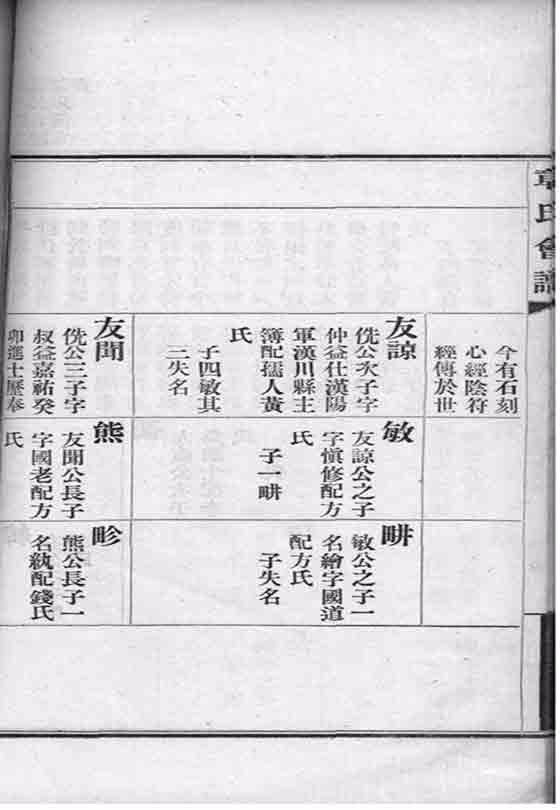 章氏會譜
今有石刻
心經陰符
經傳於世
友諒
侁公次子字
仲益仕漢陽
軍漢川縣主
簿配孺人黃
氏
子四敏其
二失名
友聞
侁公三子字
叔益嘉祐癸
卯進士歷奉
敏
友諒公之子
字慎修配方
氏
子一畊
熊
友聞公長子
字國老配方
氏
畊
敏公之子一
名繪字國道
配方氏
子失名
畛
熊公長子一
名紈配錢氏